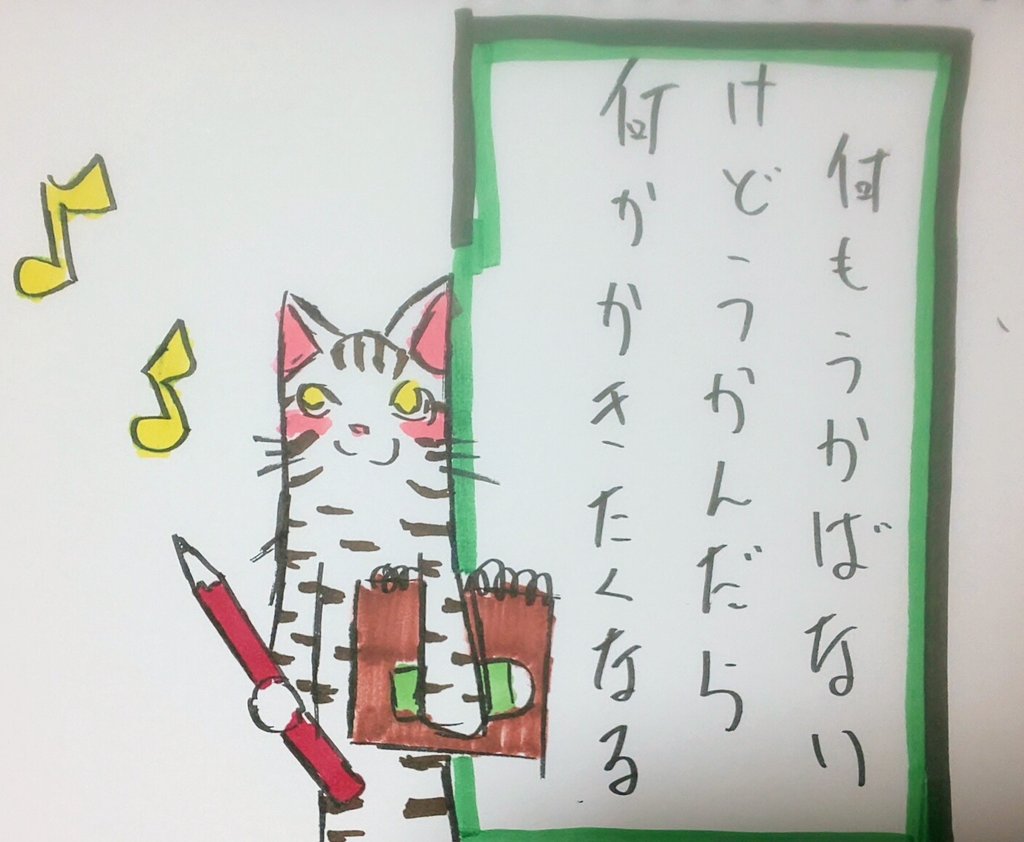 何もうかばない
けどうかんだら
何かかきたくなる